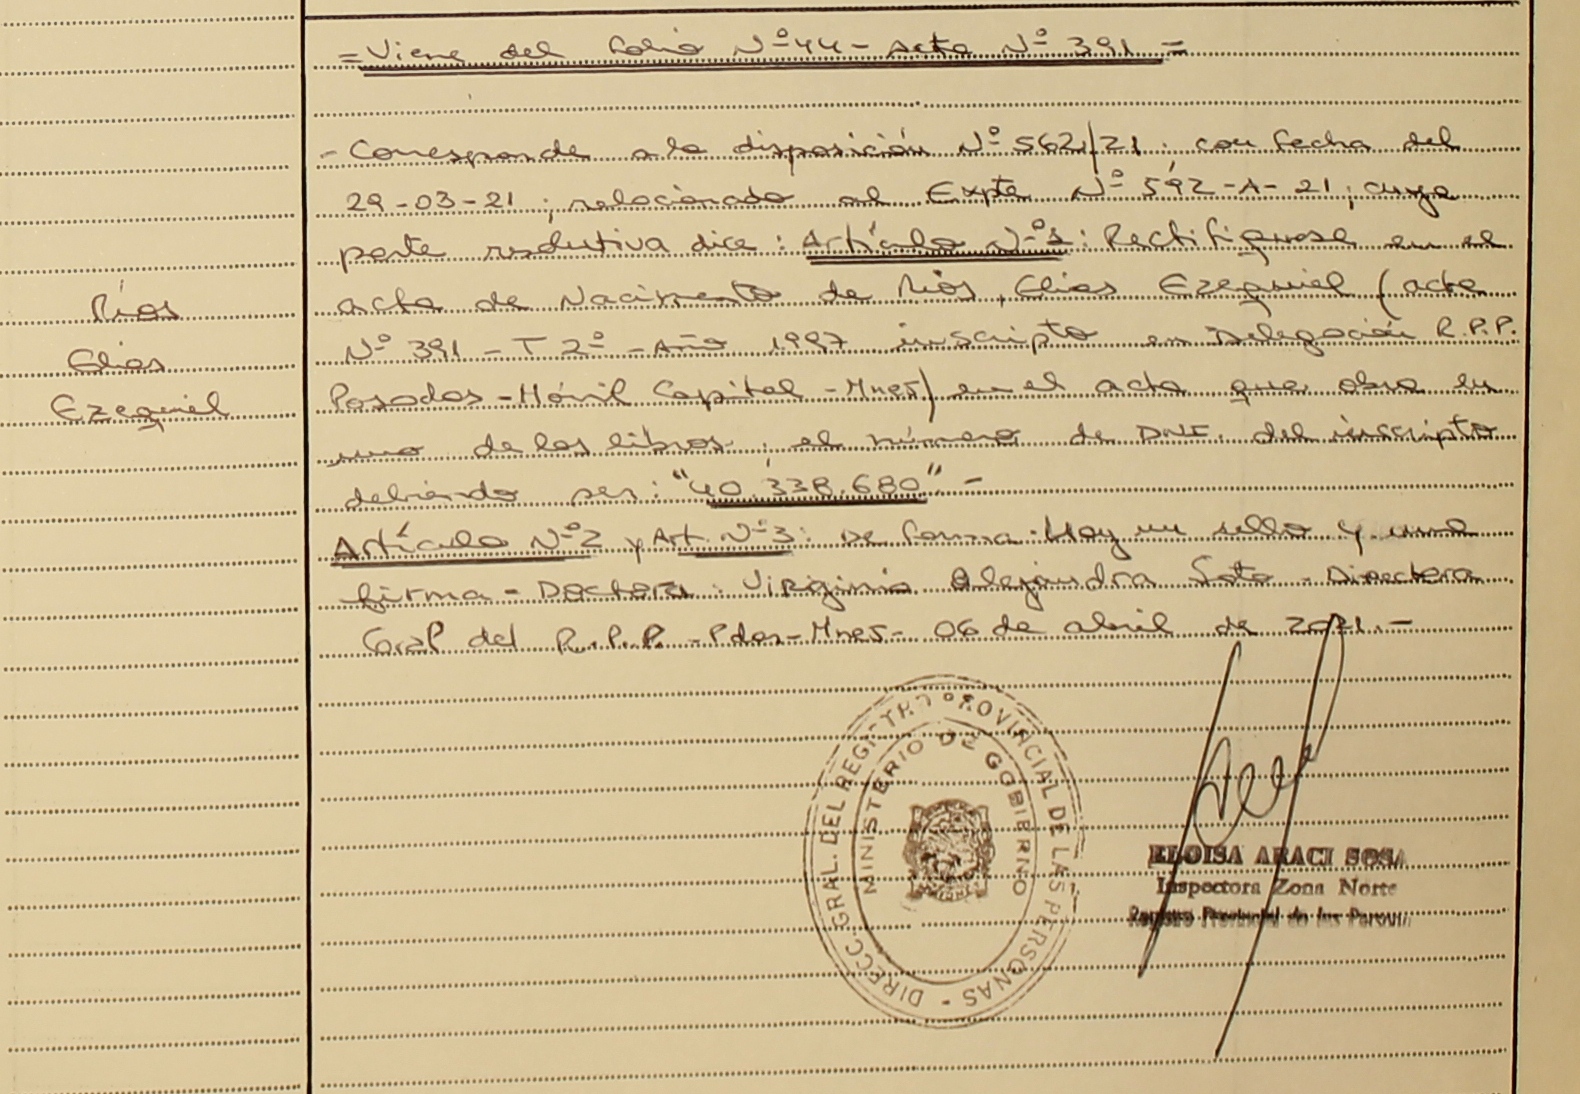 = Viene del Folio Nº 44 - Acta Nº 391 =
- Corresponde a la disposición Nº 562/21. con fecha del
29-03-21; relacionado al Expte Nº 592-A-21; cuya
parte resolutiva dice: Artículo Nº1: Rectifiquese en el
acta de Nacimiento de Ríos, Elias Ezequiel (acta
Nº 391 - T 2º - Año 1997 inscripto en Delegación R.P.P.
Posadas - Móvil Capital - Mnes) en el acta que obra en
uno de los libros; el número de DNI. del inscripto
debiendo ser: "40.338.680" -
Artículo Nº2 y Art. Nº3: De forma. Hay un sello y una
firma - Doctora: Virginia Alejandra Soto - Directora
Gral del R.P.P. - Pdas - Mnes - 06 de abril de 2021. -
Ríos
Elias
Ezequiel
DIRECC. GRAL. DEL REGISTRO PROVINCIAL DE LAS PERSONAS -
MINISTERIO DE GOBIERNO
ELOISA ARACI SOSA
Inspectora Zona Norte
Registro Provincial de las Personas